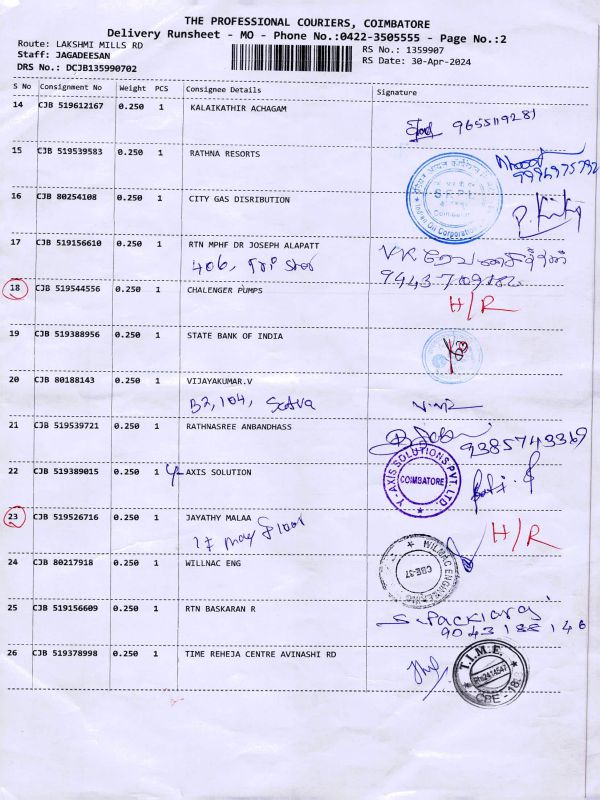 THE PROFESSIONAL COURIERS, COIMBATORE
Delivery Runsheet - MO - Phone No.:0422-3505555 - Page No.:2
Route: LAKSHMI MILLS RD
Staff: JAGADEESAN
DRS No.: DCJB135990702
RS No.: 1359907
RS Date: 30-Apr-2024
S No Consignment No Weight PCS Consignee Details Signature
14 CJB 519612167 0.250 1 KALAIKATHIR ACHAGAM
9655119281
15 CJB 519539583 0.250 1 RATHNA RESORTS
9994975792
16 CJB 80254108 0.250 1 CITY GAS DISRIBUTION
Indian Oil Corporation
Coimbatore
17 CJB 519156610 0.250 1 RTN MPHF DR JOSEPH ALAPATT
406, Tri Star
VK
9443709182
18 CJB 519544556 0.250 1 CHALENGER PUMPS
H/R
19 CJB 519388956 0.250 1 STATE BANK OF INDIA
20 CJB 80188143 0.250 1 VIJAYAKUMAR.V
B2, 104,
21 CJB 519539721 0.250 1 RATHNASREE ANBANDHASS
9385743369
22 CJB 519389015 0.250 1 Y- AXIS SOLUTION
Y-AXIS SOLUTIONS PVT. LTD.
COIMBATORE
23 CJB 519526716 0.250 1 JAYATHY MALAA
17 may floor
H/R
24 CJB 80217918 0.250 1 WILLNAC ENG
WILMAC ENGINEERING
CBE-37
25 CJB 519156609 0.250 1 RTN BASKARAN R
S. Packiaraj
9043188146
26 CJB 519378998 0.250 1 TIME REHEJA CENTRE AVINASHI RD
T.I.M.E.
CBE - 18.